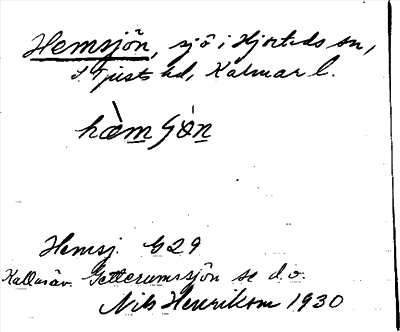 Hemsjön, sjö i Hjorteds sn,
S. Tjusts hd, Kalmar l.
Hemsj. G 29
Kallas äv. Getterumssjön se d.o.
Nils Henrikson 1930